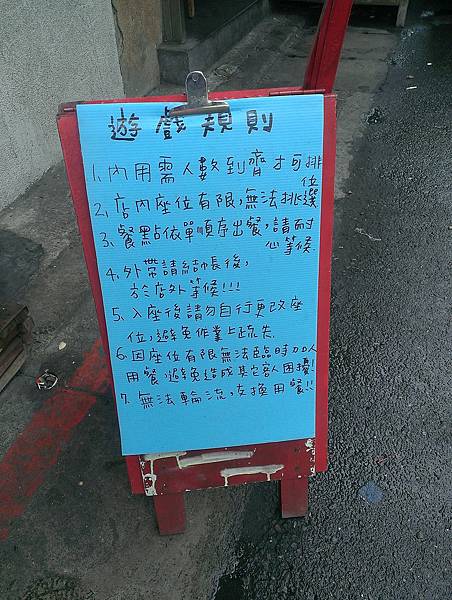 遊戲規則
1、內用需人數到齊才可排
位
2、店內座位有限,無法挑選
3、餐點依單順序出餐,請耐
心等候.
4、外帶請結帳後,
於店外等候!!!
5、入座後請勿自行更改座
位,避免作業上疏失.
6、因座位有限無法臨時加人
用餐,避免造成其它客人困擾!
7、無法輪流,交換用餐!!